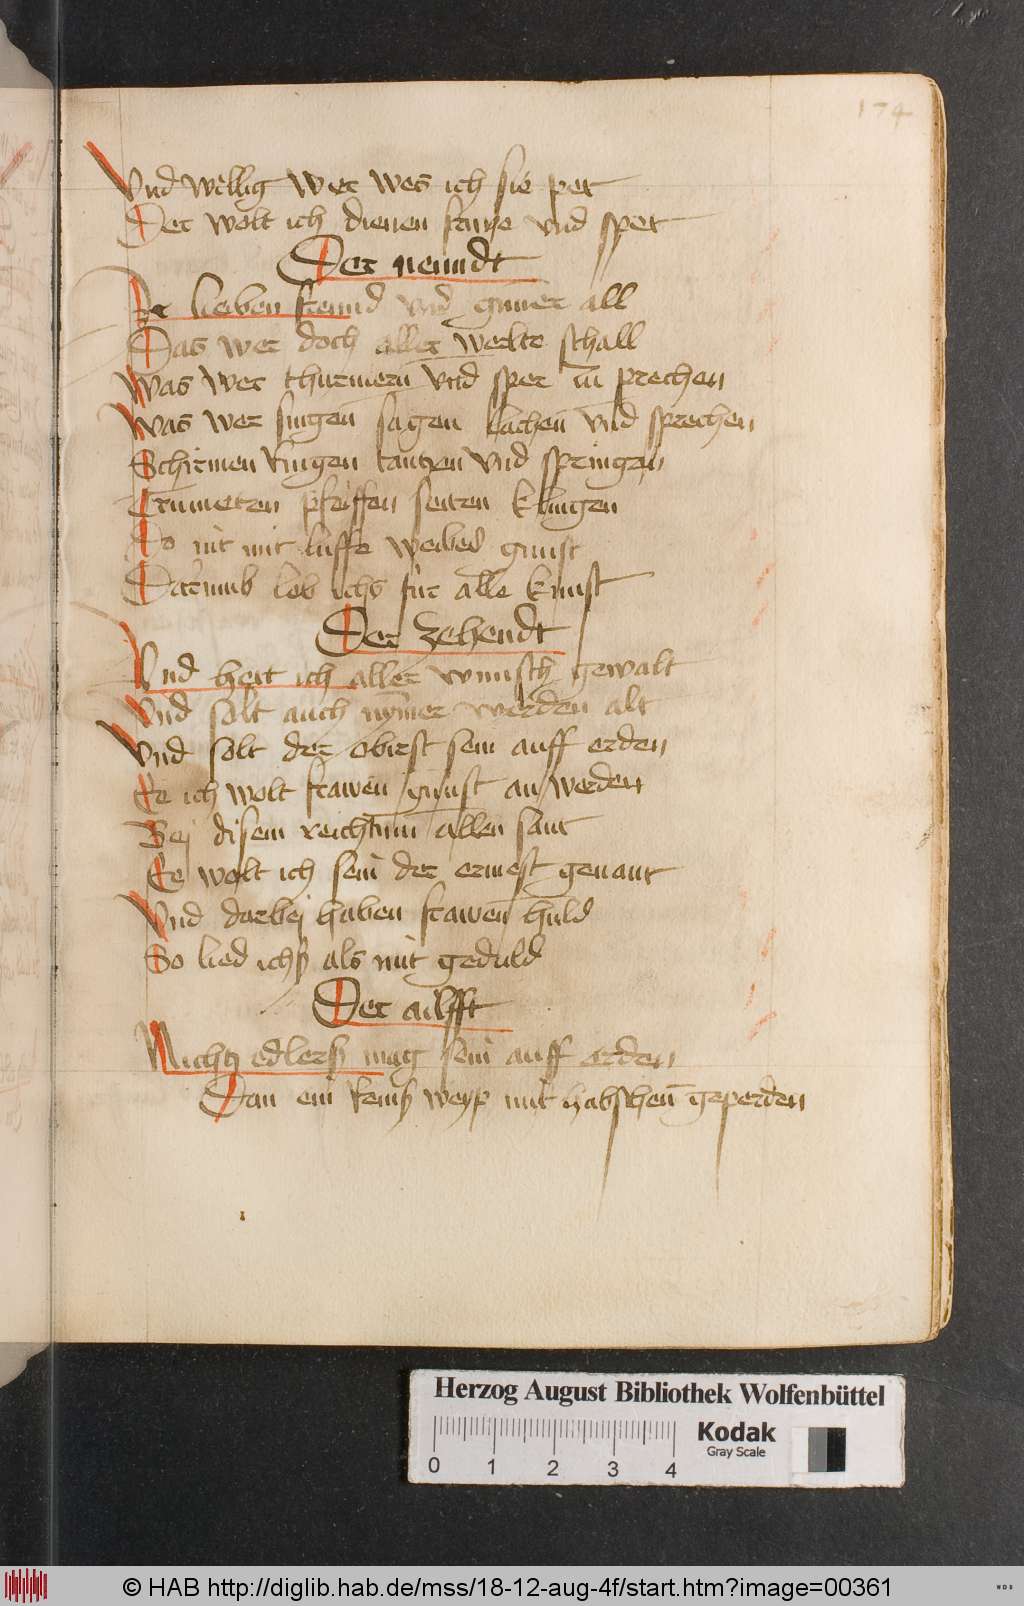 174
Vnd willig wer wes ich sie pet
Der wolt ich dienen frue vnd spet
Der neundt
Ir lieben freund vnd gunner all
Das wer doch aller werlte schall
Was wer thurniern vnd sper zu prechen
Was wer singen sagen lachen vnd sprechen
Schirmen Ringen tantzen vnd springen
Trumeten pfeiffen seiten klingen
So nit mit luffe weibes gunst
Darumb lob ichs für alle kunst
Der zehendt
Vnd het ich aller wunsch gewalt
Vnd solt auch nymer werden alt
Vnd solt der obrest sein auff erden
Ee ich wolt frawen gunst an werden
Bej disem reichtum allen sant
Ee wolt ich sein der ermest genant
Vnd darbej haben frawen huld
So lied ichß als mit geduld
Der ailfft
Nichtz edlerß mag sein auff erden
Dan ein reinß weyp mit hübschen geperden
Herzog August Bibliothek Wolfenbüttel
Kodak
Gray Scale
0 1 2 3 4
© HAB http://diglib.hab.de/mss/18-12-aug-4f/start.htm?image=00361